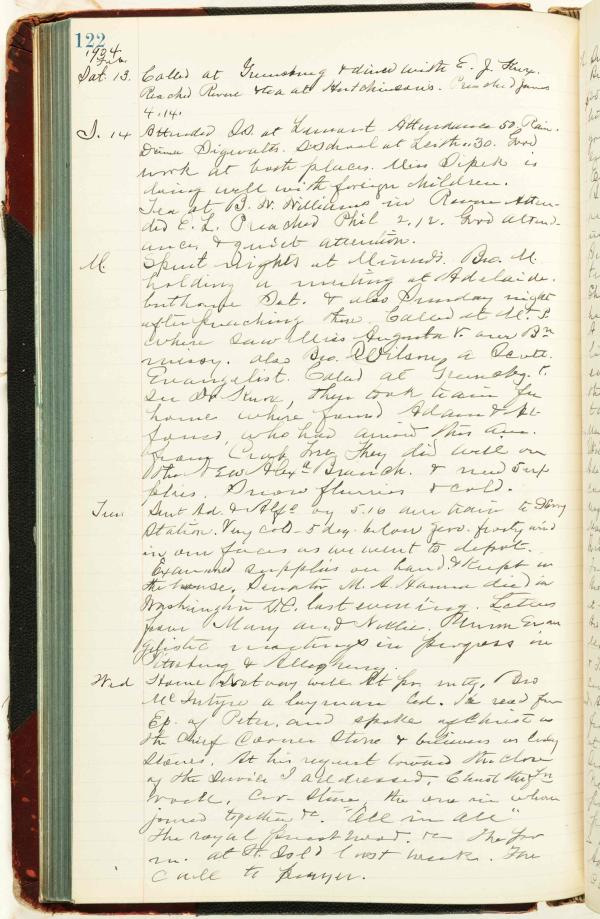 122
1904
Feb.
Sat. 13. Called at Greensburg & dined with E. J. Knox.
Reached Rovne & tea at Hutchinsons. Preached James
4.14.
S. 14 Attended S.S. at Attendance 50. Rain.
S School at 30. Good
work at both places. Miss Sipek is
doing well with foreign children.
Tea at B. W. Williams in Atten-
ded E. L. Preached Phil 2.12. Good attend-
ance & quiet attention.
M. Spent nights at Minnds. Bro. M.
holding a meeting at Adelaide.
Sat. & also Sunday night
after preaching there. Called at Mt. P.
where saw Miss Augusta V. our Bn
missy. also Bro. Wilson, a Scott.
Evangelist. Called at Greensbg. to
see Dr Knox, then took train for
home where found Adam & Al-
fonso, who had arrived this
from They did well on
the New Alexa Branch. & need sup
plies. Snow flurries & cold.
Tues Sent Ad. & Alfo by 5.16 am train to Derry
Station. Very cold - 5 deg. below zero. frosty wind
in our faces as we went to depot.
Examined supplies on hand & kept in
the house. Senator M. A. Hanna died in
Washington D.C. last evening. Letters
from Mary and Nellie. Union Evan
gelistic meetings in progress in
Pittsburg & Allegheny.
Wed Home. Not very well. At pr. mtg. Bro
McIntyre a layman led. He read from
Ep. of Peter, and spoke of Christ as
the Chief Corner Stone & believers as lively
Stones. At his request toward the close
of the service I addressed, Christ the Fn
rock, Cor-Stone, the one in whom
joined together &c. "All in all"
The royal priesthood. &c The pr
m. at last week. The
Call to prayer.